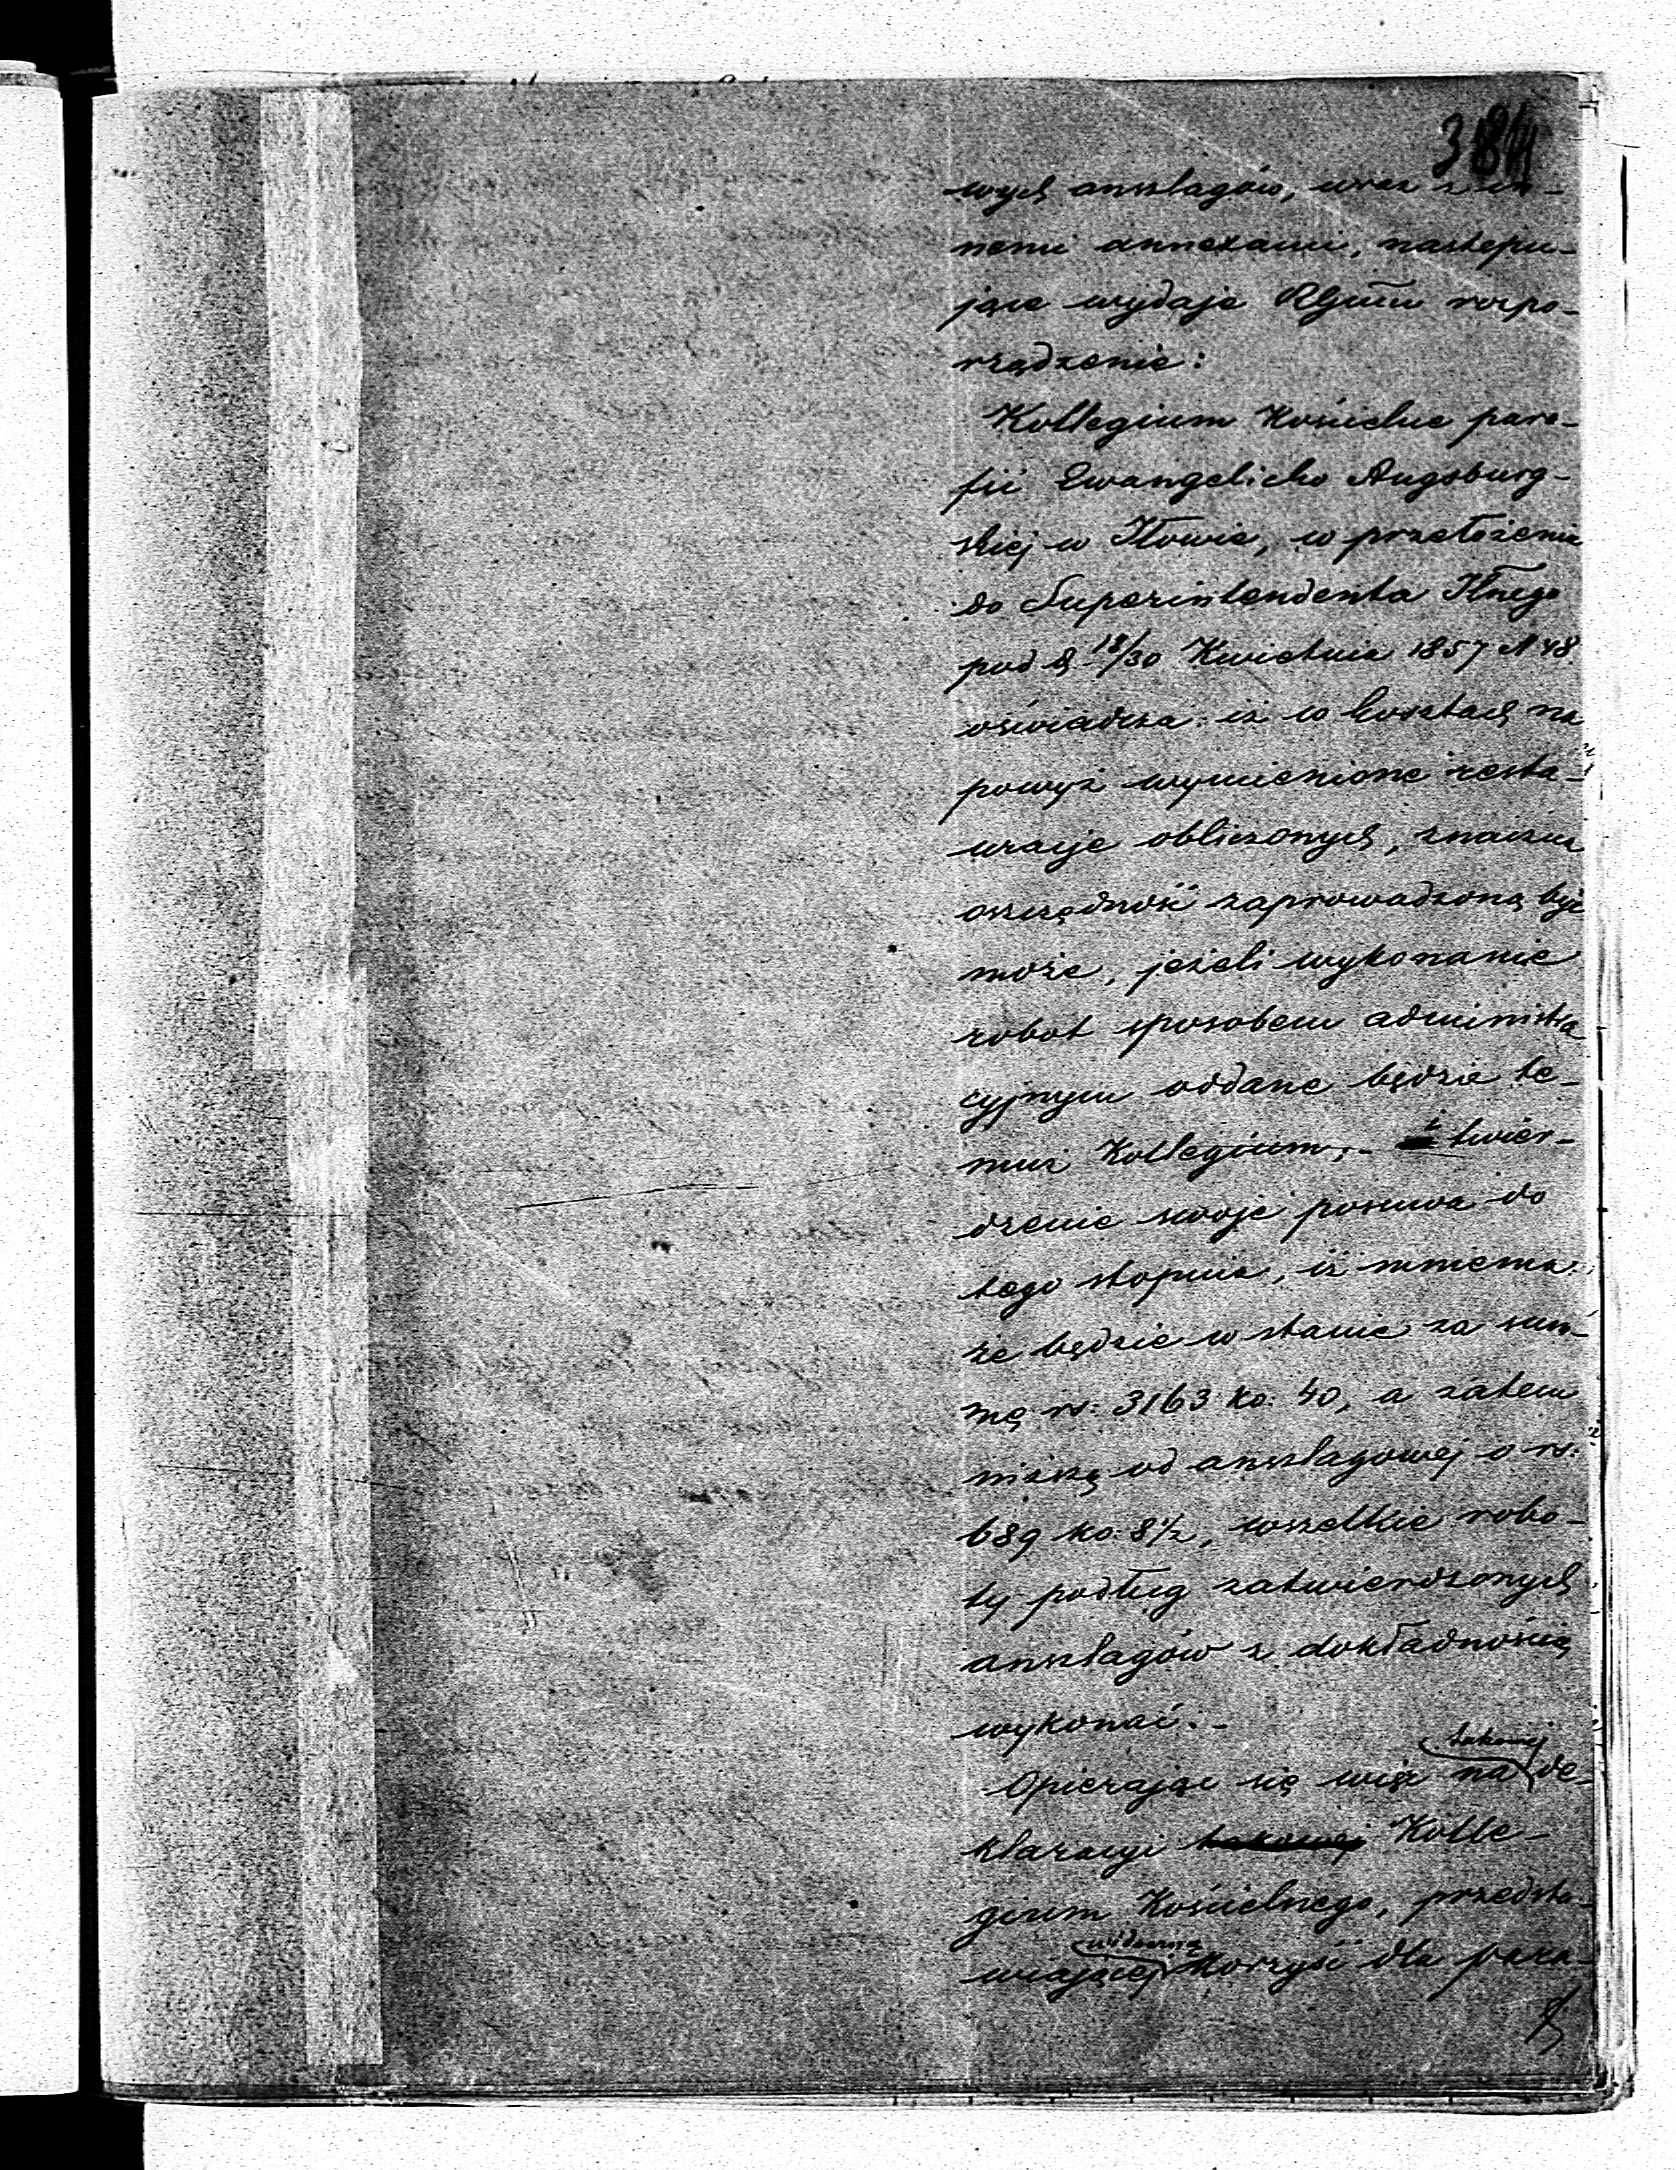 wych anszlagów, wraz z in-
nemi annexami, nastepu-
jące wydaje rozpo-
rządzenie:
Kollegium Kościelne para-
fii Ewangelicko Augsburg-
skiej w Iłowie, w przełożeniu
do Superintendenta Iłnego
pod d 18/30 Kwietnia 1857 N 48
oświadcza: iż w kosztach na
powyż wymienione resta-
uracje obliczonych, znaczna
oszczędność zaprowadzoną być
może, jeżeli wykonanie
robot sposobem administra
cyjnym oddane będzie te-
muż Kollegium,- i twier-
dzenie swoje posuwa do
tego stopnia, iż mniema:
że będzie w stanie za sum-
mę rs: 3163 ko: 40, a zatem
niższą od anszlagowej o rs:
689 ko: 8 1/2, wszelkie robo-
ty podług zatwierdzonych
anszlagów z dokładnością
wykonać.-
takowej
Opierając się więc na de-
klaracyi takowej Kolle-
gium Kościelnego, przedsta-
widoczną
wiającej korzyść dla para-